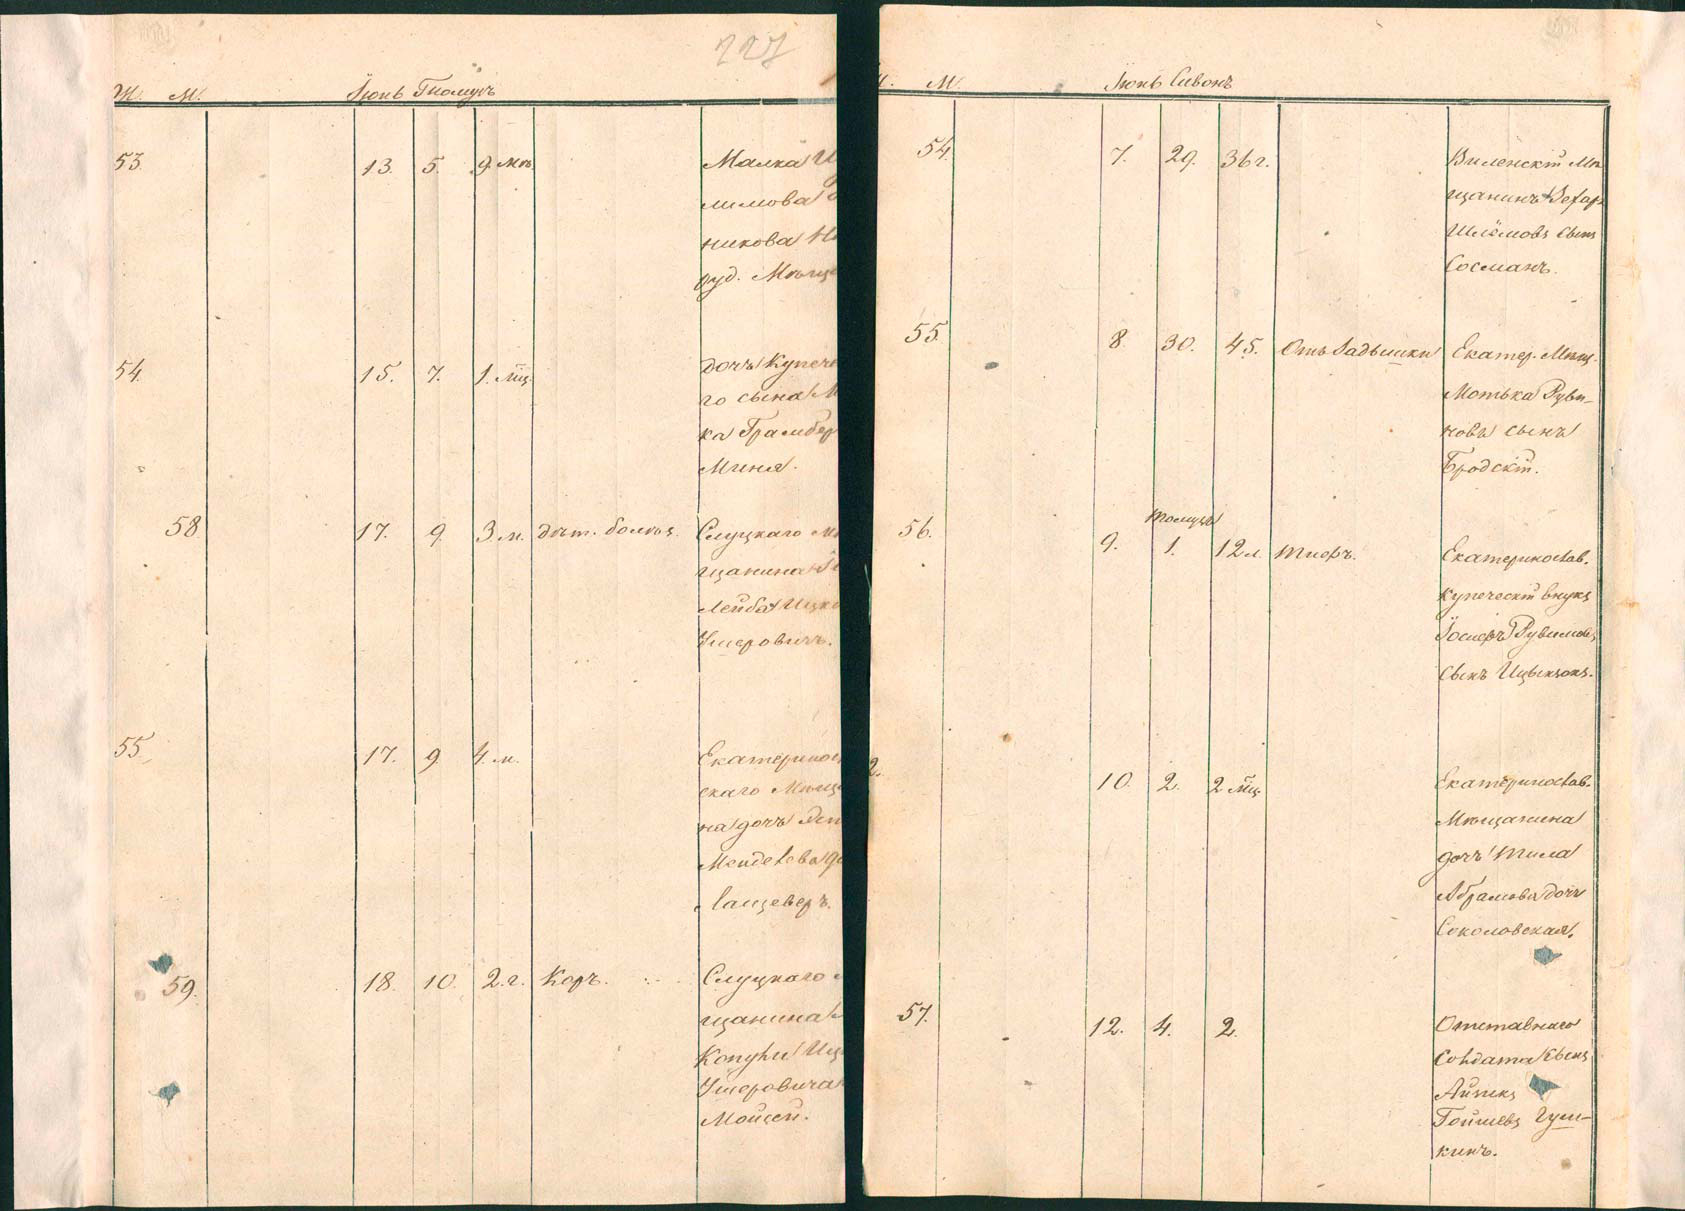 727
Ж. М. Іюнь Тамузъ
53. 13. 5. 9. мѣс.
Малка
лимова
никова
руд. Мѣща
54. 15. 7. 1. мѣц.
дочь Купече
го сына М
ка Грамбер
Миня.
58 17. 9. 3. м. дѣт. болѣз.
Слуцкаго Мѣ
щанина
Лейба Ицко
Ушеровичъ.
55. 17. 9. 4. м.
Екатеринос
скаго Мѣща
на дочь
Менделева до
Ланцеверъ.
59. 18. 10. 2. г. Корь.
Слуцкаго м
щанина
Копуһи Иц
Ушеровича
Мойсей.
М. Іюнь Сивонъ
54. 7. 29. 36 г.
Виленскій Мѣ
щанинъ
Шлёмовъ сынъ
Сосманъ.
55. 8. 30. 45. Отъ Задышки
Екатер. Мѣщ.
Мотька Руви-
новъ сынъ
Бродскій.
Томузъ
56. 9. 1. 12 л. Тифъ.
Екатеринослав.
купеческій внукъ
Іосифъ Рувимовъ
сынъ Ицыксонъ.
2. 10. 2. 2 мѣц.
Екатеринослав.
Мѣщанина
дочь Тила
Абрамова дочь
Соколовская.
57. 12. 4. 2.
Отставнаго
Солдата сынъ
Айзикъ
Гойшевъ Гуш-
кинъ.